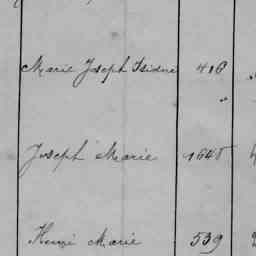 Marie Joseph Isidore 416
"
Joseph Marie 1648
Henri Marie 539